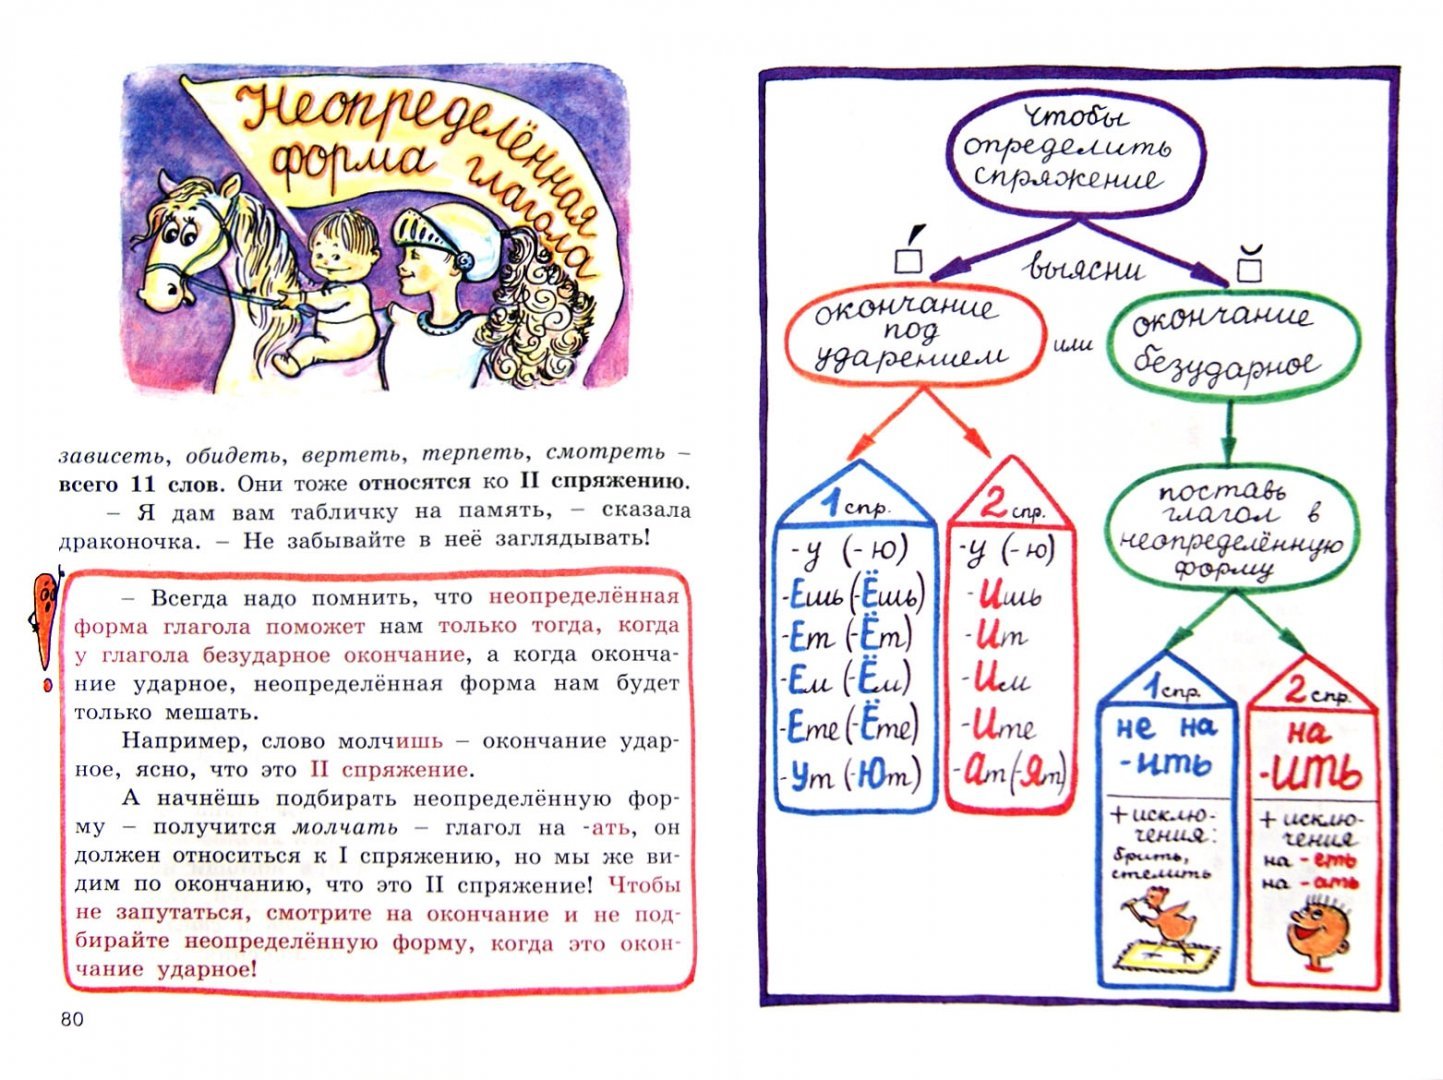 Неопределённая
форма глагола
зависеть, обидеть, вертеть, терпеть, смотреть –
всего 11 слов. Они тоже относятся ко II спряжению.
– Я дам вам табличку на память, – сказала
драконочка. – Не забывайте в неё заглядывать!
– Всегда надо помнить, что неопределённая
форма глагола поможет нам только тогда, когда
у глагола безударное окончание, а когда оконча-
ние ударное, неопределённая форма нам будет
только мешать.
Например, слово молчишь – окончание удар-
ное, ясно, что это II спряжение.
А начнёшь подбирать неопределённую фор-
му – получится молчать – глагол на -ать, он
должен относиться к I спряжению, но мы же ви-
дим по окончанию, что это II спряжение! Чтобы
не запутаться, смотрите на окончание и не под-
бирайте неопределённую форму, когда это окон-
чание ударное!
80
Чтобы
определить
спряжение
выясни
окончание
под
ударением
или
окончание
безударное
1 спр.
-у (-ю)
-Ешь (-Ёшь)
-Ет (-Ёт)
-Ем (-Ём)
-Ете (-Ёте)
-Ут (-Ют)
2 спр.
-у (-ю)
-Ишь
-Ит
-Им
-Ите
-Ат (-Ят)
поставь
глагол в
неопределённую
форму
1 спр.
не на
-ить
+ исклю-
чения:
брить,
стелить
2 спр.
на
-ить
+ исклю-
чения
на -еть
на -ать